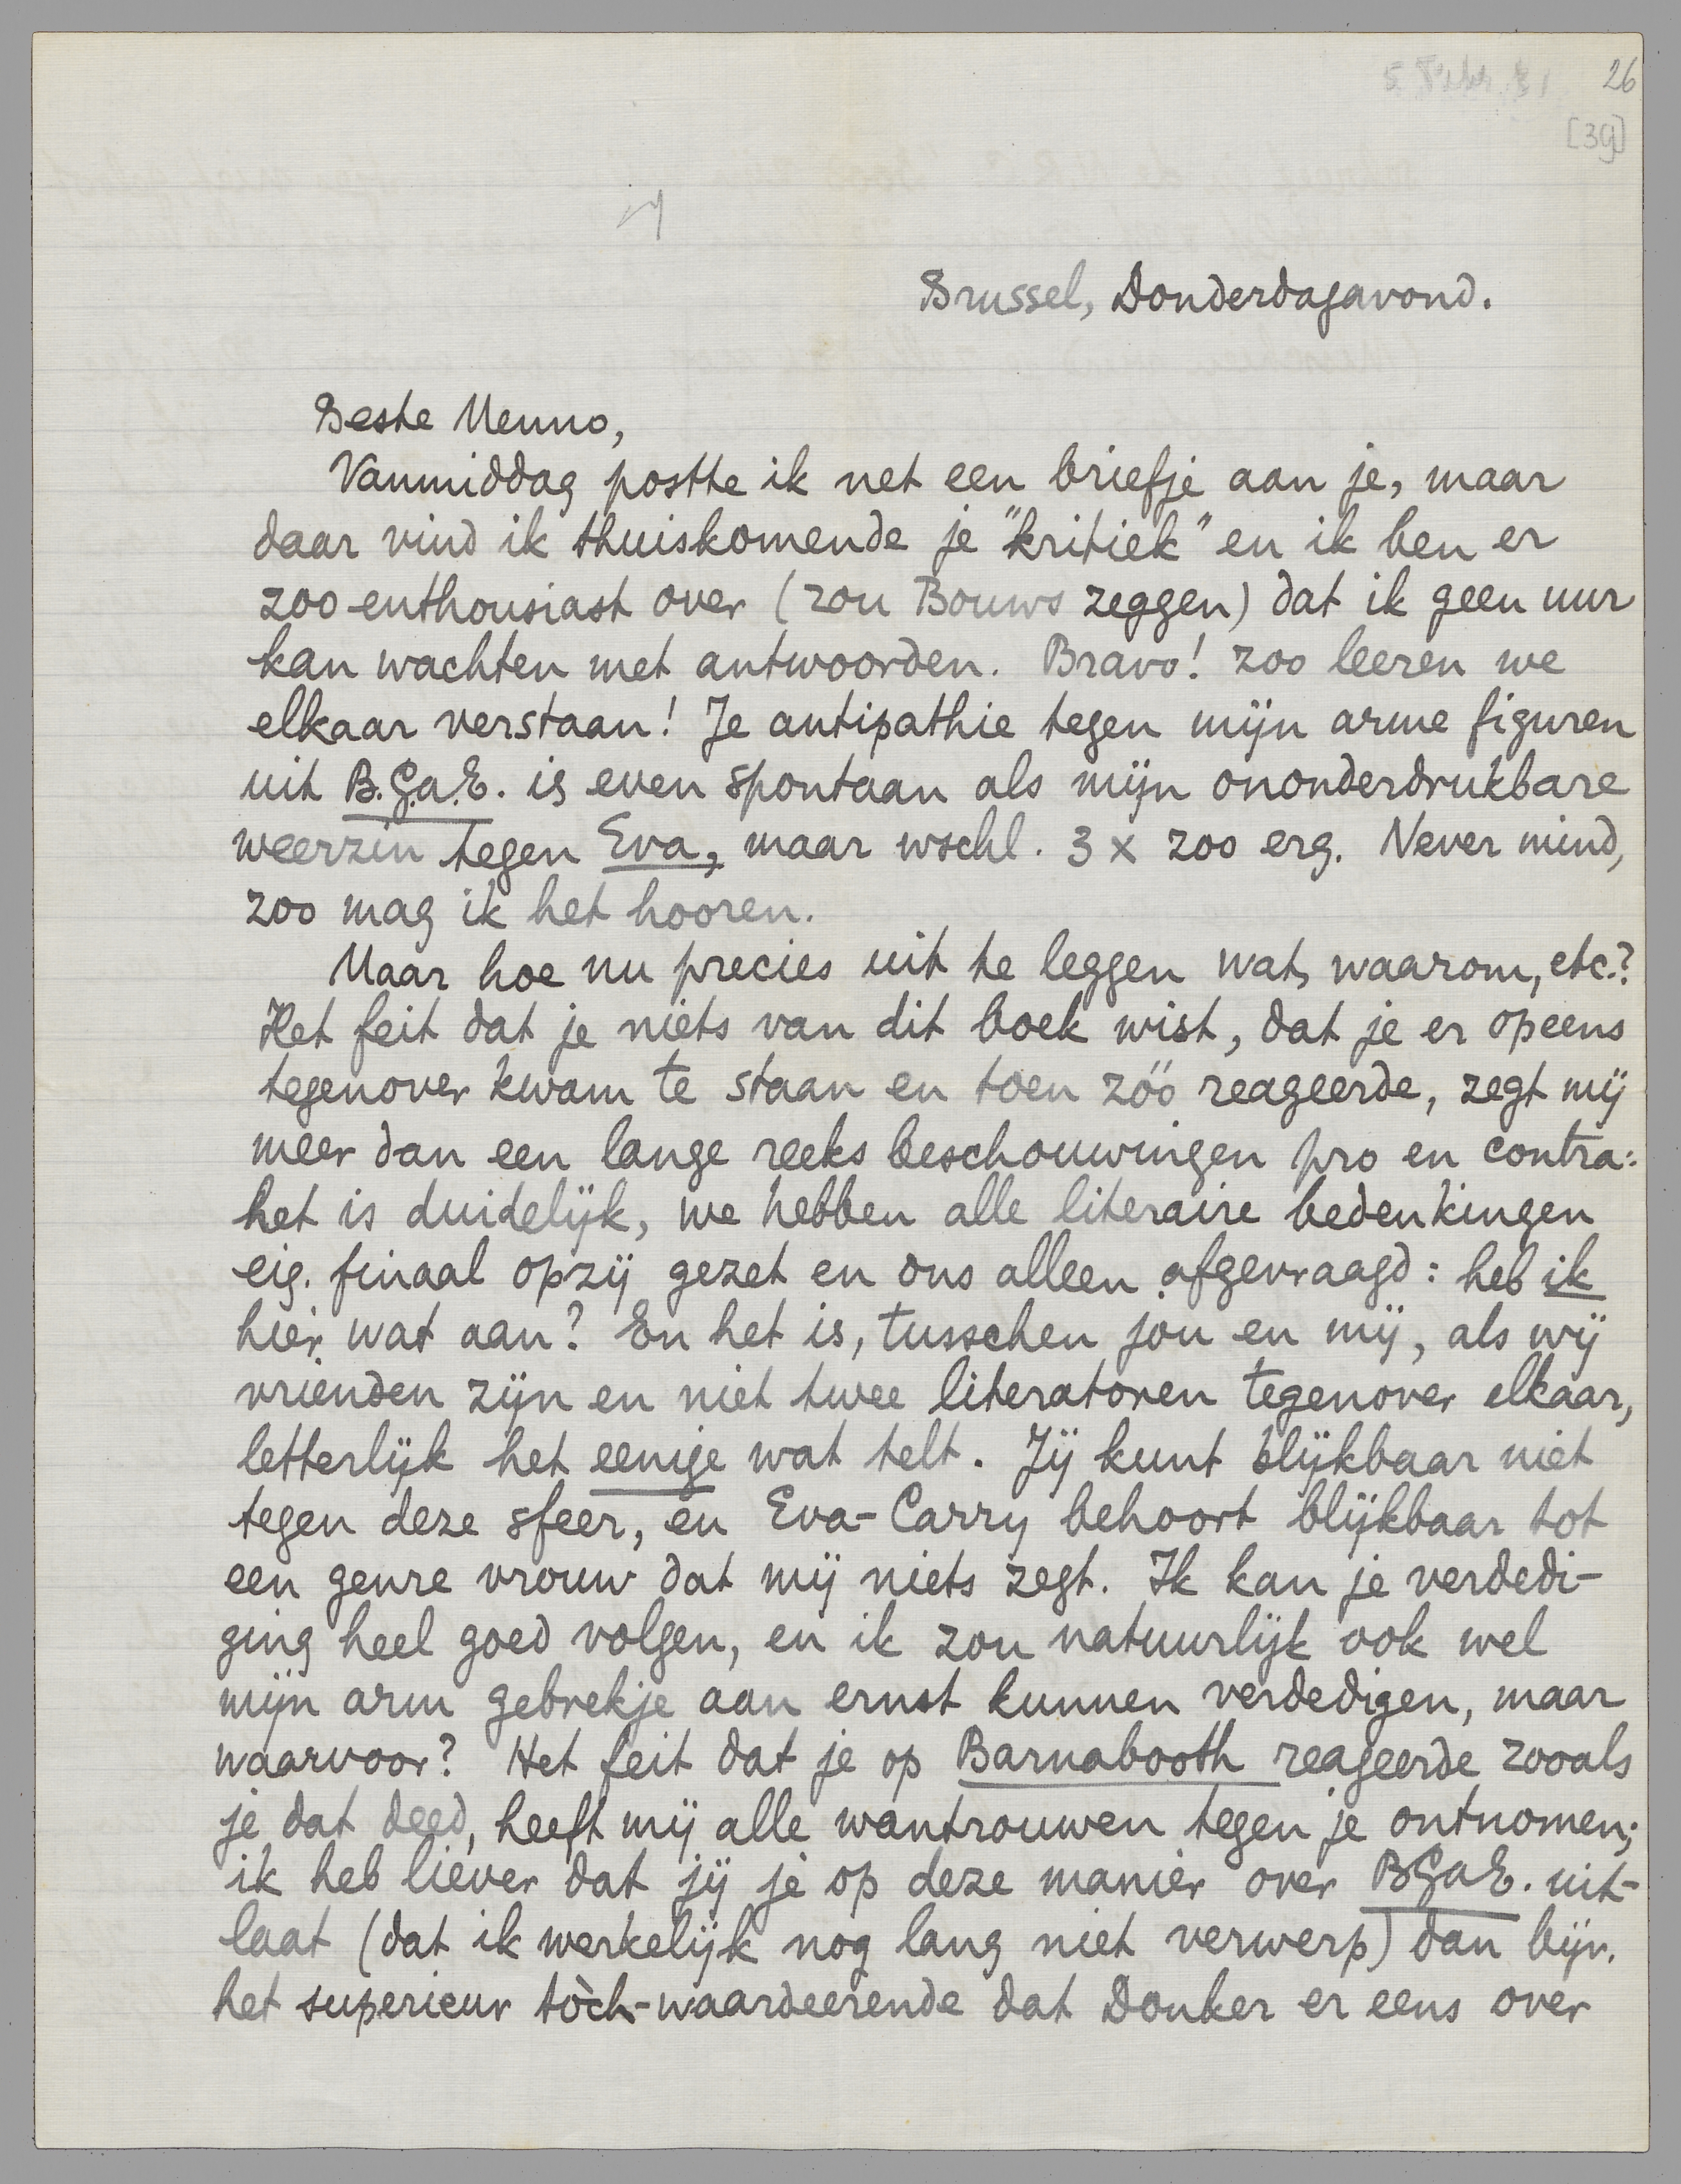 26
[39]
Brussel, Donderdagavond.
Beste Menno,
Vanmiddag postte ik net een briefje aan je, maar
daar vind ik thuiskomende je "kritiek" en ik ben er
zoo enthousiast over (zou Bouws zeggen) dat ik geen uur
kan wachten met antwoorden. Bravo! zoo leeren we
elkaar verstaan! Je antipathie tegen mijn arme figuren
uit B.G.a.E. is even spontaan als mijn ononderdrukbare
weerzin tegen Eva, maar wschl. 3 x zoo erg. Never mind,
zoo mag ik het hooren.
Maar hoe nu precies uit te leggen wat, waarom, etc.?
Het feit dat je niets van dit boek wist, dat je er opeens
tegenover kwam te staan en toen zóó reageerde, zegt mij
meer dan een lange reeks beschouwingen pro en contra:
het is duidelijk, we hebben alle literaire bedenkingen
eig. finaal opzij gezet en ons alleen afgevraagd: heb ik
hier wat aan? En het is, tusschen jou en mij, als wij
vrienden zijn en niet twee literatoren tegenover elkaar,
letterlijk het eenige wat telt. Jij kunt blijkbaar niet
tegen deze sfeer, en Eva-Carry behoort blijkbaar tot
een genre vrouw dat mij niets zegt. Ik kan je verdedi-
ging heel goed volgen, en ik zou natuurlijk ook wel
mijn arm gebrekje aan ernst kunnen verdedigen, maar
waarvoor? Het feit dat je op Barnabooth reageerde zooals
je dat deed, heeft mij alle wantrouwen tegen je ontnomen;
ik heb liever dat jij je op deze manier over BGaE. uit-
laat (dat ik werkelijk nog lang niet verwerp) dan bijv.
het superieur tòch-waardeerende dat Donker er eens over